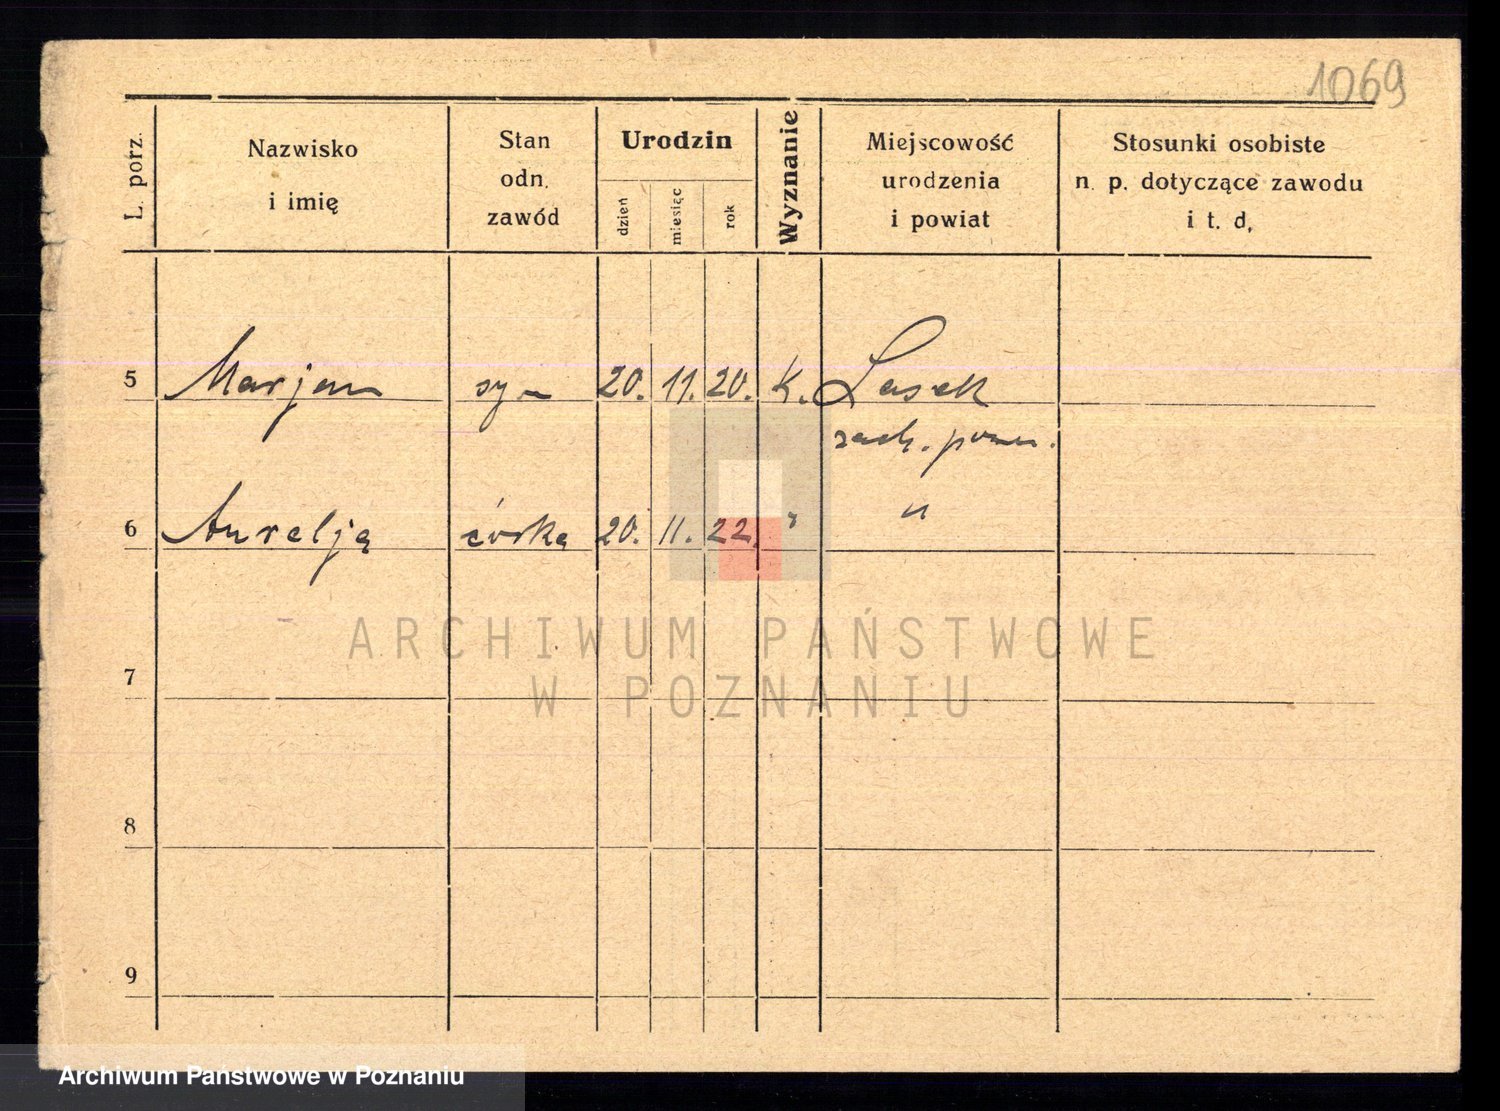 1069
L. porz.
Nazwisko
i imię
Stan
odn.
zawód
Urodzin
dzień
miesiąc
rok
Wyznanie
Miejscowość
urodzenia
i powiat
Stosunki osobiste
n. p. dotyczące zawodu
i t. d.
5 Marjan syn 20. 11. 20. K. Lasek
zach. pozn.
6 Aurelja córka 20. 11. 22. " "
7
8
9
ARCHIWUM PAŃSTWOWE
W POZNANIU
Archiwum Państwowe w Poznaniu